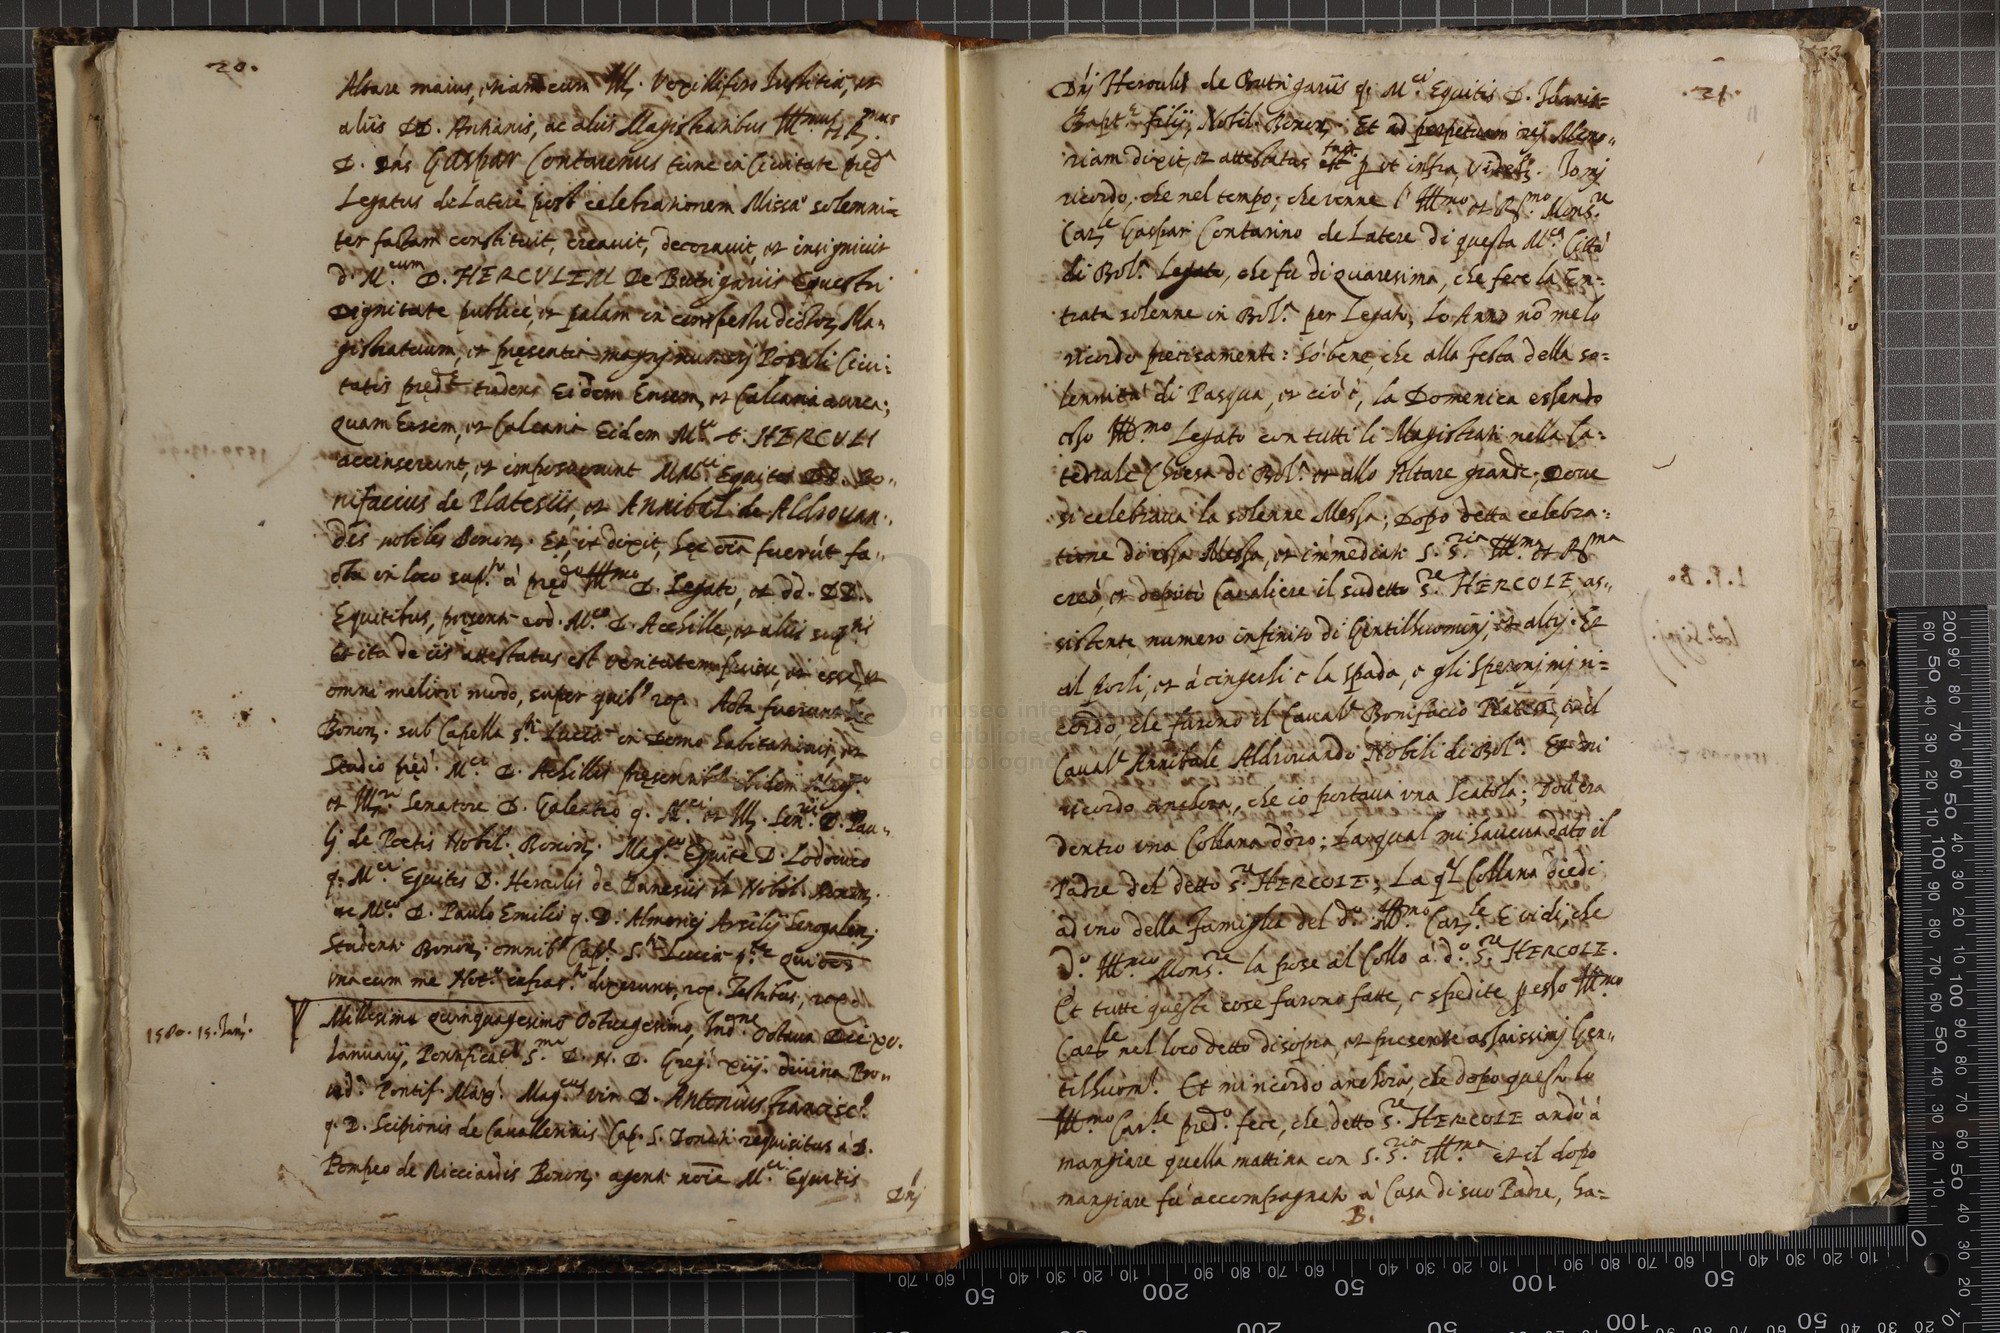 20.
Altare maius, etiam cum Ill. Vexillifero Iustitiæ, et
aliis DD. Antianis, ac aliis Magistratibus Ill.mus et R.mus
D. Dns Gaspar Contarenus tunc in Civitate pred.a
Legatus de Latere post celebrationem Missæ solemni=
ter factam constituit, creauit, decorauit, et insigniuit
d. M.cum D. HERCVLEM De Butrigariis Equestri
Dignitate publicè, et palam in conspectu dictor. Ma=
gistratuum, et presentia magni numeri Populi Ciui=
tatis pred.e tradens Eidem Ensem, et Calcaria aurea;
quam Ensem, et Calcaria Eidem M.co D. HERCVLI
accinxerunt, et imposuerunt MM.ci Equites DD. Bo=
nifacius de Platesiis, et Annibal de Aldrouan=
dis nobiles Bonon. Et, ut dixit, hec oia fuerūt fa=
cta in loco sup.to à pred.o Ill.mo D. Legato, et dd. DD.
Equitibus, presente eod. M.co D. Achille, et aliis sup.tis
Et ita de iis attestatus est veritatem fuisse, et esse, et
omni meliori modo, super quib.s rog. Acta fuerunt hec
Bonon. sub Capella S.te Luciæ in Domo habitationis, et
Studio pred.i M.ci D. Achillis presentib.s ibidem
et Ill.re Senatore D. Galeatio q. M.ci et Ill. Sen.ris D. Pau=
li de Poetis Nobil. Bonon. Mag.co Equite D. Lodouico
q. M.ci Equitis D. Herculis de Danesiis et Nobil. Bonon.
ac M.co D. Paulo Emilio q. D. Almerici Arsilij Senogalien.
Studenti Bonon. omnib.s Cap. S. Luciæ
vna cum me Not.o infras.to dixerunt, rog. Testibus, rog.
1580. 15. Janˢ.
Millesimo quinquagesimo Octuagesimo, Ind.ne Octaua Die xv.
Ianuarij, Pontificat.s S.mi D. N. D. Greg. xiij. diuina Pro=
uid.a Pontif. Max. Mag.cus vir D. Antonius Francisc.s
q. D. Scipionis de Cauallerinis Cap. S. Donati requisitus à D.
Pompeo de Ricciardis Bonon. agente noie M.ci Equitis
Dnj
21.
33
Dnj Herculis de Butrigariis q. M.ci Equitis D. Iohanis=
Bapt.e filij, Nobil. Bonon. Et ad perpetuam rej Memo=
riam dixit, et attestatus est p. ut infra, videlt. Io mj
ricordo, che nel tempo; che venne l' Ill.mo et R.mo Mons.re
Car.le Gaspar Contarino de Latere di questa M.ca Città
di Bol.a Legato, che fu di quaresima, che fece la En=
trata solenne in Bol.a per Legato, Lo Anno nō me lo
ricordo precisamente: Sò bene, che alla festa della so=
lennità di Pasqua, et ciò è, la Domenica essendo
esso Ill.mo Legato con tutti li Magistrati nella Ca=
tedrale Chiesa di Bol.a et allo Altare grande; Doue
si celebraua la solenne Messa; Dopò detta celebra=
tione di essa Messa, et immediati S. S.ria Ill.ma et R.ma
creò, et deputò Caualiere il sudetto S.re HERCOLE, as=
sistente numero infinito di Gentilhuominj, et altrj. Et
al porli, et à cingerli e la Spada, e gli Speronj mj ri=
cordo, che furono il Caual.r Bonifaccio Piatesi, et il
Caual.r Annibale Aldrouando Nobili di Bol.a Et mi
ricordo anchora, che io portaua vna Scatola; Dou'era
dentro vna Collana d'oro; La qual mi haueua dato il
Padre del detto S.re HERCOLE; La q.l Collana diedi
ad vno della famiglia del d.o Ill.mo Car.le E vidi, che
d.o Ill.mo Mons.re la pose al Collo à d.o S.re HERCOLE.
Et tutte queste cose furono fatte, e spedite p esso Ill.mo
Car.le nel loco detto di sopra, et presente assaissimj Gen=
tilhuom.i Et mi ricordo anchora, che dopo questo lo
Ill.mo Car.le pred.o fece, che detto S.re HERCOLE andò à
mangiare quella mattina con S. S.ria Ill.ma et il dopo
mangiare fù accompagnato à Casa di suo Padre, ha=
B.